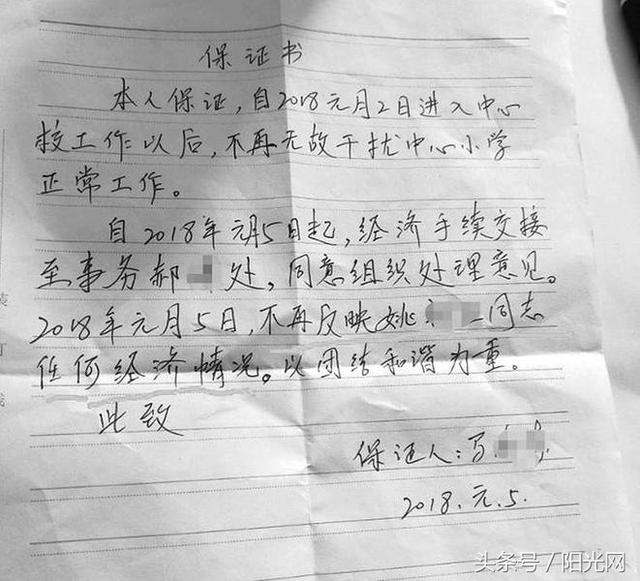 保证书
本人保证,自2018元月2日进入中心
校工作以后,不再无故干扰中心小学
正常工作。
自2018年元月5日起,经济手续交接
至事务郝 处,同意组织处理意见。
2018年元月5日,不再反映姚 同志
任何经济情况。以团结和谐为重。
此致
保证人:
2018.元.5.
头条号/阳光网